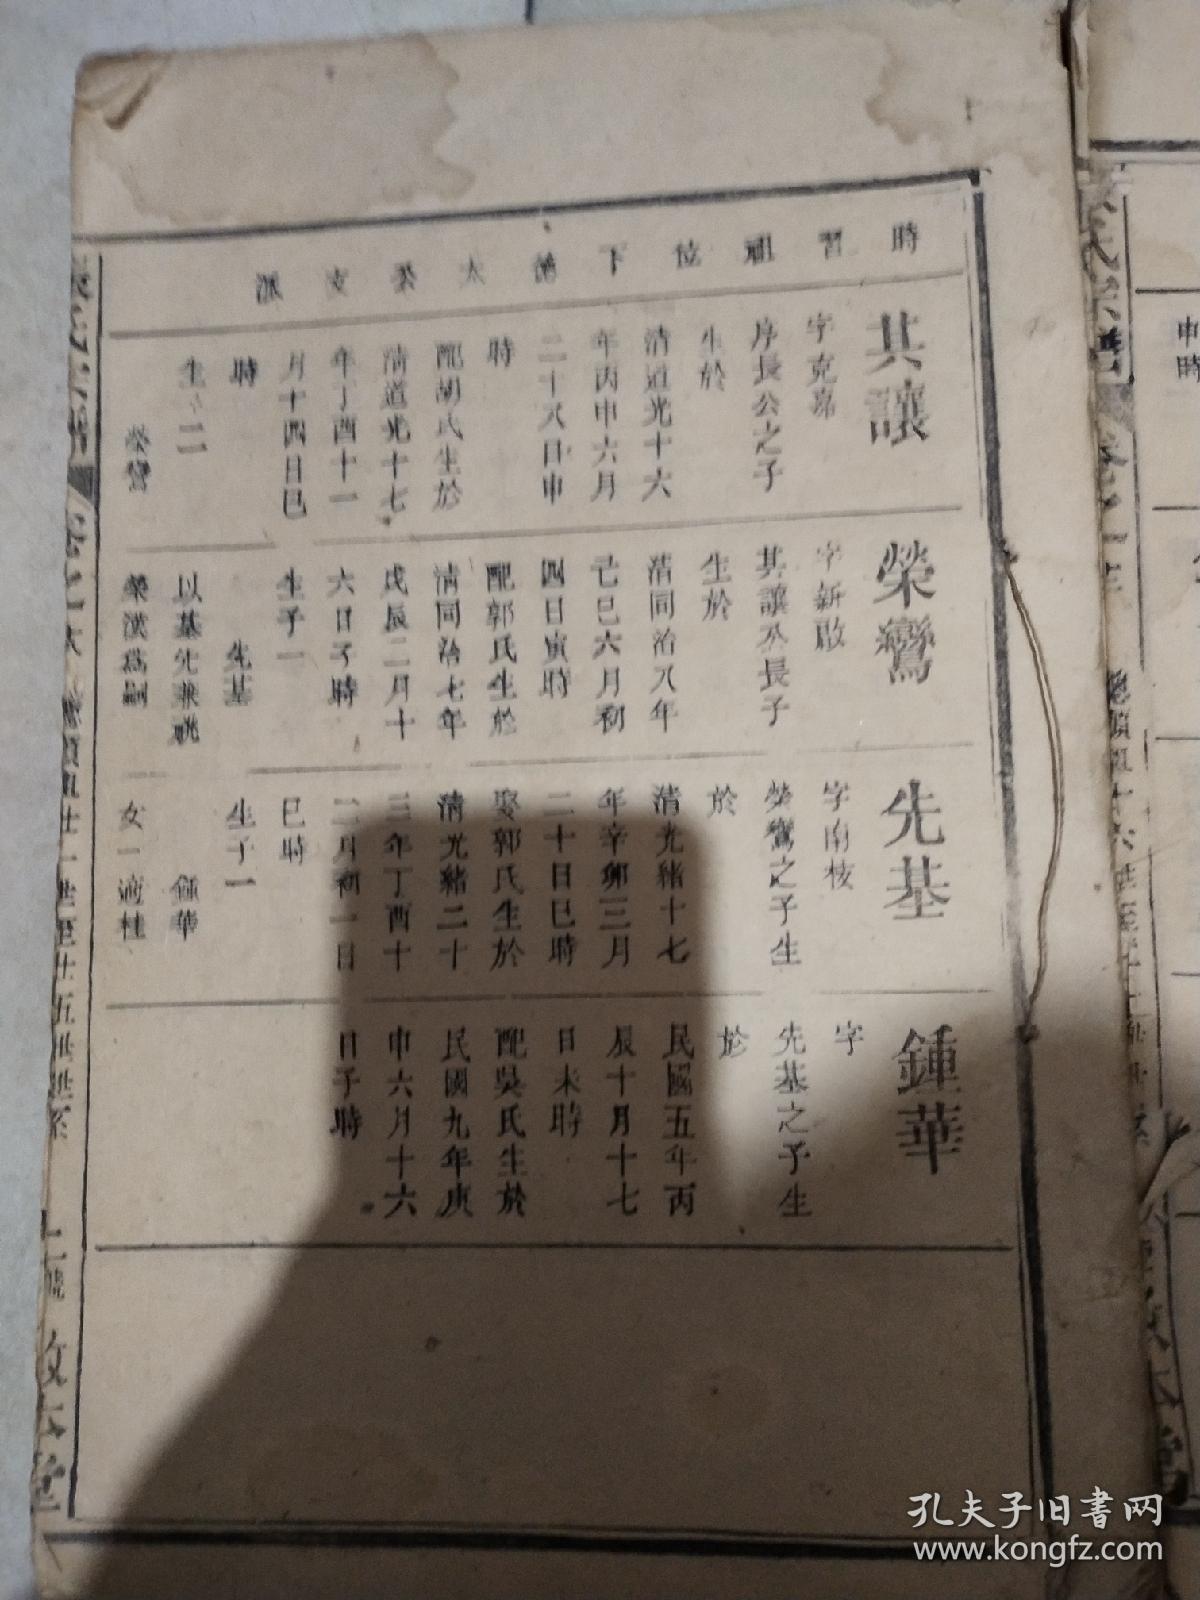 時習祖位下德太公支派
共讓
字克嘉
序長公之子
生於
清道光十六
年丙申六月
二十八日申
時
配胡氏生於
清道光十七
年丁酉十一
月十四日巳
時
生二
榮鸞
榮鸞
字新敢
共讓公長子
生於
清同治八年
己巳六月初
四日寅時
配郭氏生於
清同治七年
戊辰二月十
六日子時
生子一
先基
以基先兼祧
榮漢為嗣
先基
字南核
榮鸞之子生
於
清光緒十七
年辛卯三月
二十日巳時
娶郭氏生於
清光緒二十
三年丁酉十
二月初一日
巳時
生子一
鍾華
女一適桂
鍾華
字
先基之子生
於
民國五年丙
辰十月十七
日未時
配吳氏生於
民國九年庚
申六月十六
日子時
申時
孔夫子旧書网
www.kongfz.com